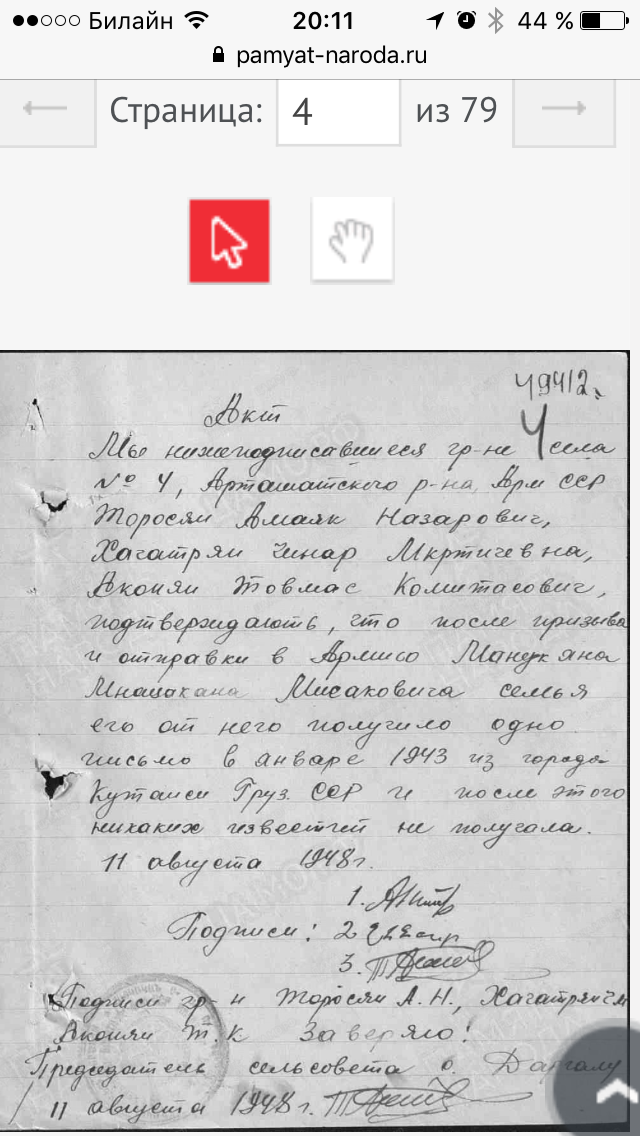 Билайн 20:11 44 %
pamyat-naroda.ru
Страница: 4 из 79
49412.
4
Акт
Мы нижеподписавшиеся гр-не села
№ 4, Арташатского р-на, Арм ССР
Торосян Амаяк Назарович,
Хачатрян Чинар Мкртичевна,
Акопян Товмас Комитасович,
подтверждають, что после призыва
и отправки в Армию Манукяна
Мнацакана Мисаковича семья
его от него получило одно
письмо в январе 1943 из города
Кутаиси Груз. ССР и после этого
никаких известий не получала.
11 августа 1948 г.
1.
Подписи: 2
3.
Подписи гр-н Торосян А. Н., Хачатрян Ч М
Акопян Т. К Заверяю!
Председатель сельсовета с.
11 августа 1948 г.